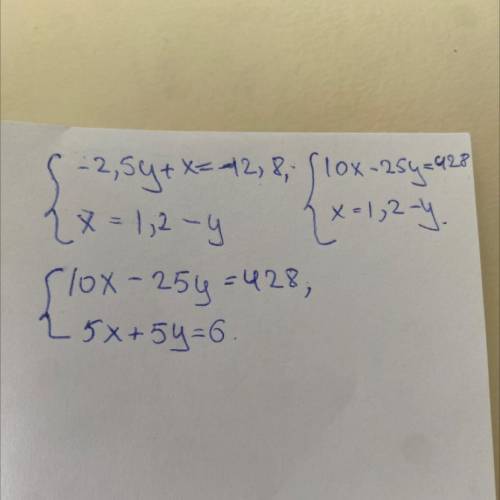 -2,5y + x = -12,8;
x = 1,2 - y
10x - 25y = 428
x = 1,2 - y.
10x - 25y = 428;
5x + 5y = 6.